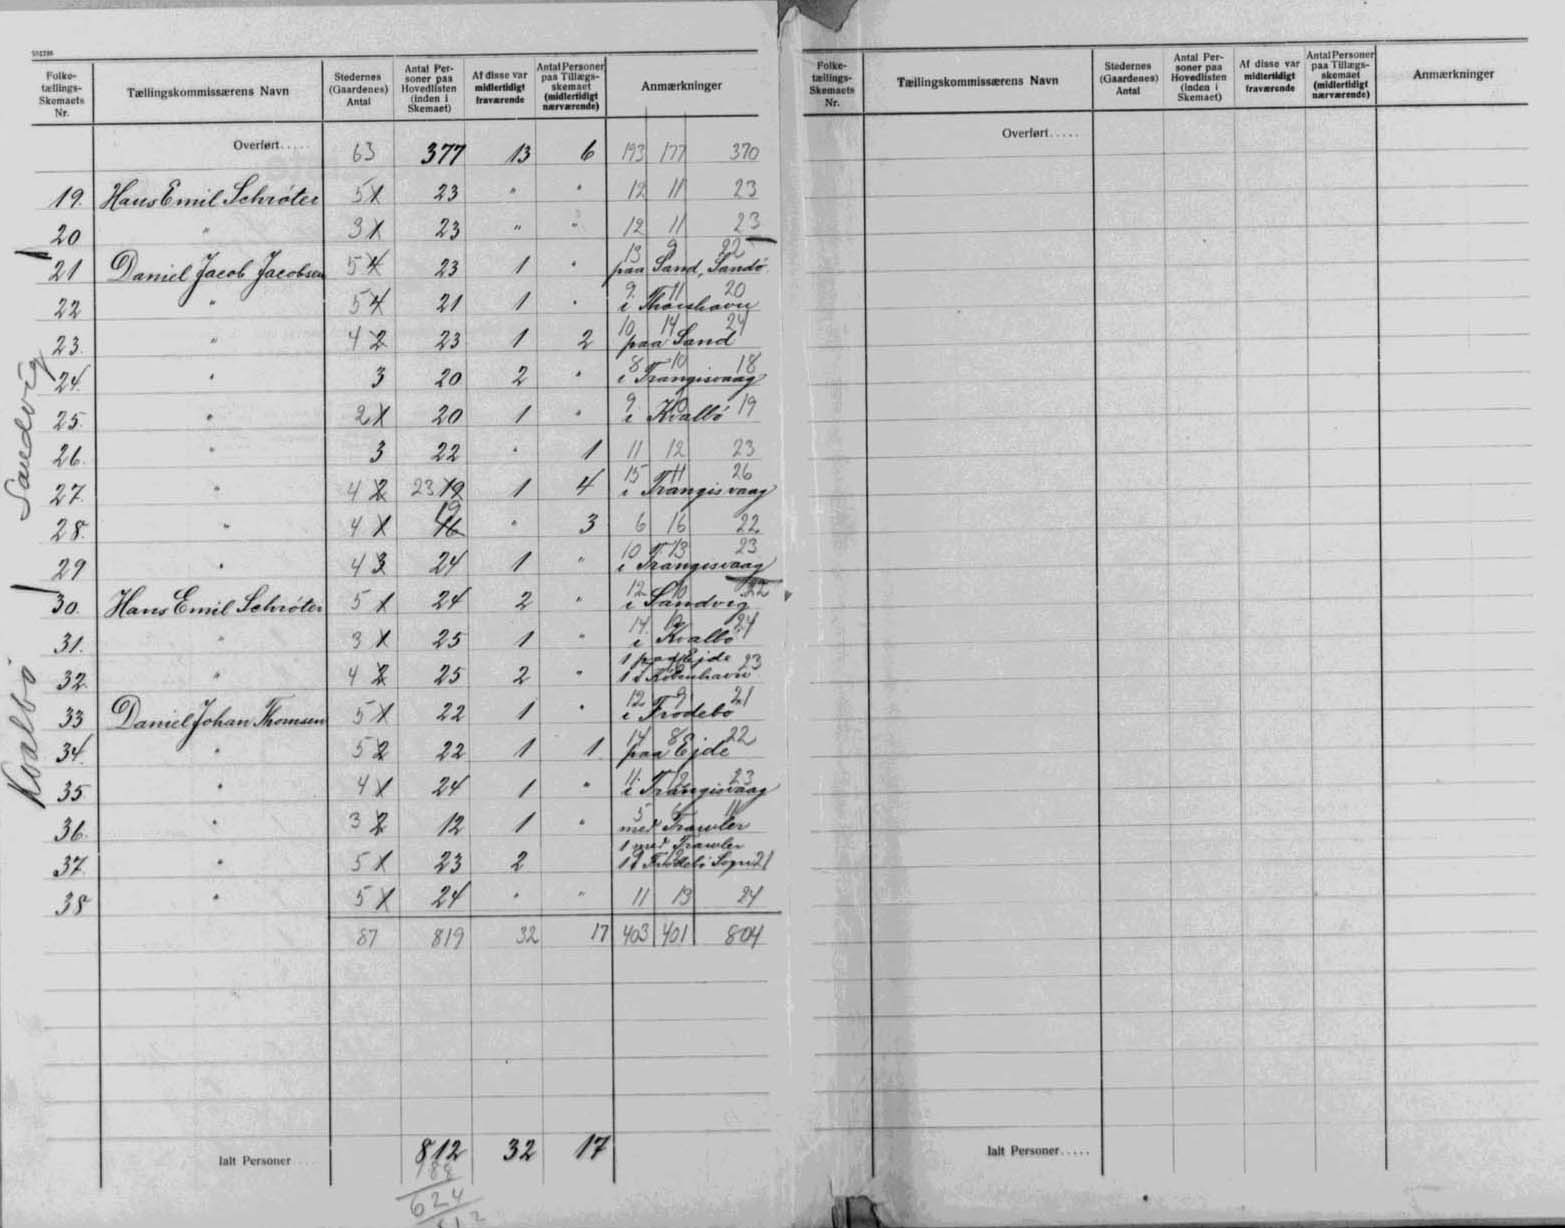 Folke-
tællings-
Skemaets
Nr.
Tællingskommissærens Navn
Stedernes
(Gaardenes)
Antal
Antal Per-
soner paa
Hovedlisten
(inden i
Skemaet)
Af disse var
midlertidigt
fraværende
Antal Personer
paa Tillægs-
skemaet
(midlertidigt
nærværende)
Anmærkninger
Overført..... 63 377 13 6 193 177 370
19. Hans Emil Schröter 5 1 23 " " 12 11 23
20 " 3 1 23 " " 12 11 23
21 Daniel Jacob Jacobsen 5 4 23 1 " 13 9 22
paa Sand, Sandö
22 " 5 4 21 1 " 9 11 20
i Thorshavn
23. " 4 2 23 1 2 10 14 24
paa Sand
24. " 3 20 2 " 8 10 18
i Trangisvaag
25. " 2 1 20 1 " 9 10 19
i Kvalbö
26. " 3 22 " 1 11 12 23
27. " 4 2 23 19 1 4 15 11 26
i Trangisvaag
28. " 4 1 19 16 " 3 6 16 22
29 " 4 3 24 1 " 10 13 23
i Trangisvaag
30. Hans Emil Schröter 5 1 24 2 " 12 10 22
i Sandvig
31. " 3 1 25 1 " 14 10 24
i Kvalbö
32. " 4 2 25 2 " 1 paa Ejde 23
1 i København
33 Daniel Johan Thomsen 5 1 22 1 " 12 9 21
i Frodebö
34. " 5 2 22 1 1 14 8 22
paa Ejde
35 " 4 1 24 1 " 11 12 23
i Trangisvaag
36. " 3 2 12 1 " 5 6 11
med Trawler
37. " 5 1 23 2 1 med Trawler
1 i Frodebö Sogn 21
38 " 5 1 24 " " 11 13 24
87 819 32 17 403 401 804
Ialt Personer.... 812 32 17
188
624
Sandvig
Kvalbö
Folke-
tællings-
Skemaets
Nr.
Tællingskommissærens Navn
Stedernes
(Gaardenes)
Antal
Antal Per-
soner paa
Hovedlisten
(inden i
Skemaet)
Af disse var
midlertidigt
fraværende
Antal Personer
paa Tillægs-
skemaet
(midlertidigt
nærværende)
Anmærkninger
Overført.....
Ialt Personer.....